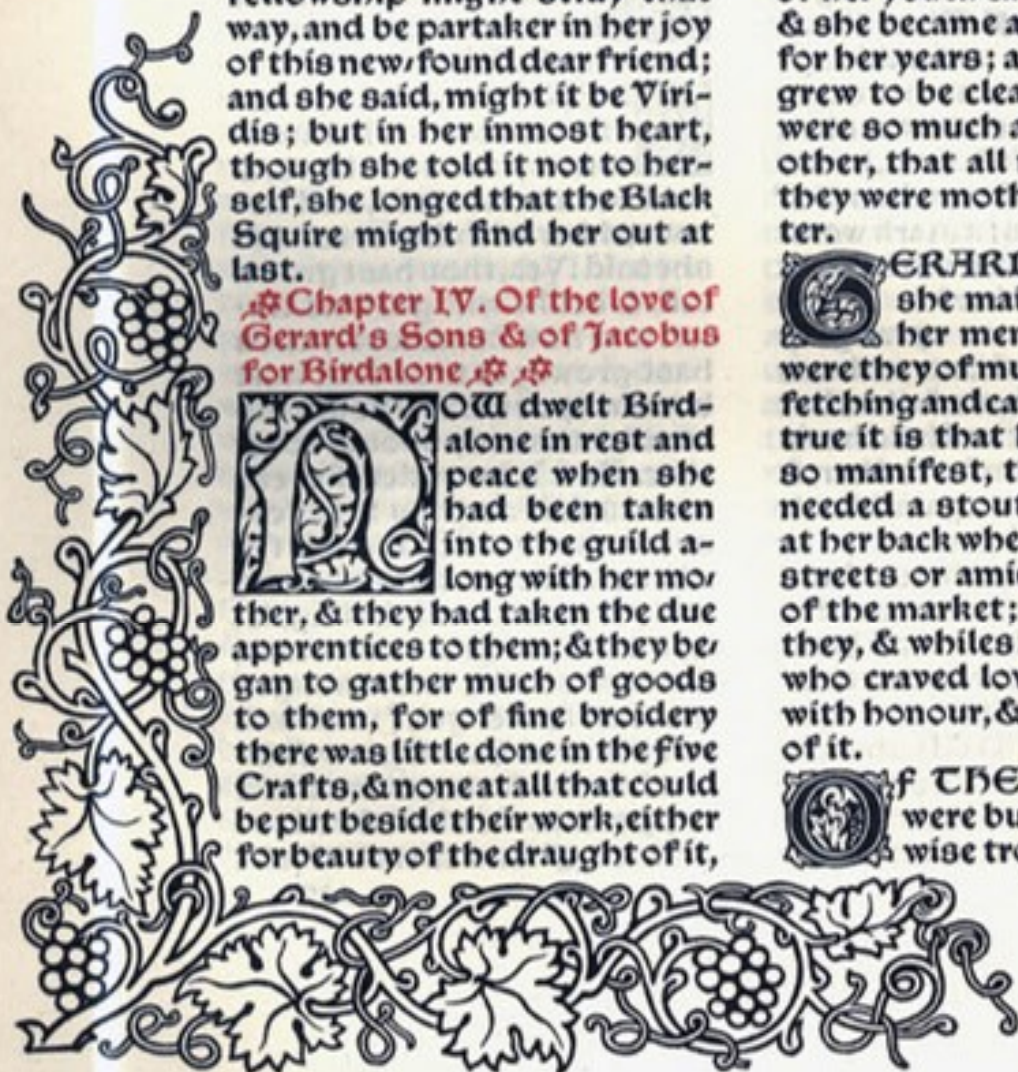 way, and be partaker in her joy
of this new-found dear friend;
and she said, might it be Viri-
dis; but in her inmost heart,
though she told it not to her-
self, she longed that the Black
Squire might find her out at
last.
Chapter IV. Of the love of
Gerard's Sons & of Jacobus
for Birdalone
NOW dwelt Bird-
alone in rest and
peace when she
had been taken
into the guild a-
long with her mo-
ther, & they had taken the due
apprentices to them; & they be-
gan to gather much of goods
to them, for of fine broidery
there was little done in the Five
Crafts, & none at all that could
be put beside their work, either
for beauty of the draught of it,
& she became a
for her years; a
grew to be clea
were so much a
other, that all
they were moth
ter.
GERARD
she mai
her men
were they of mu
fetching and ca
true it is that
so manifest, t
needed a stout
at her back whe
streets or ami
of the market;
they, & whiles
who craved lov
with honour, &
of it.
OF THE
were bu
wise tro